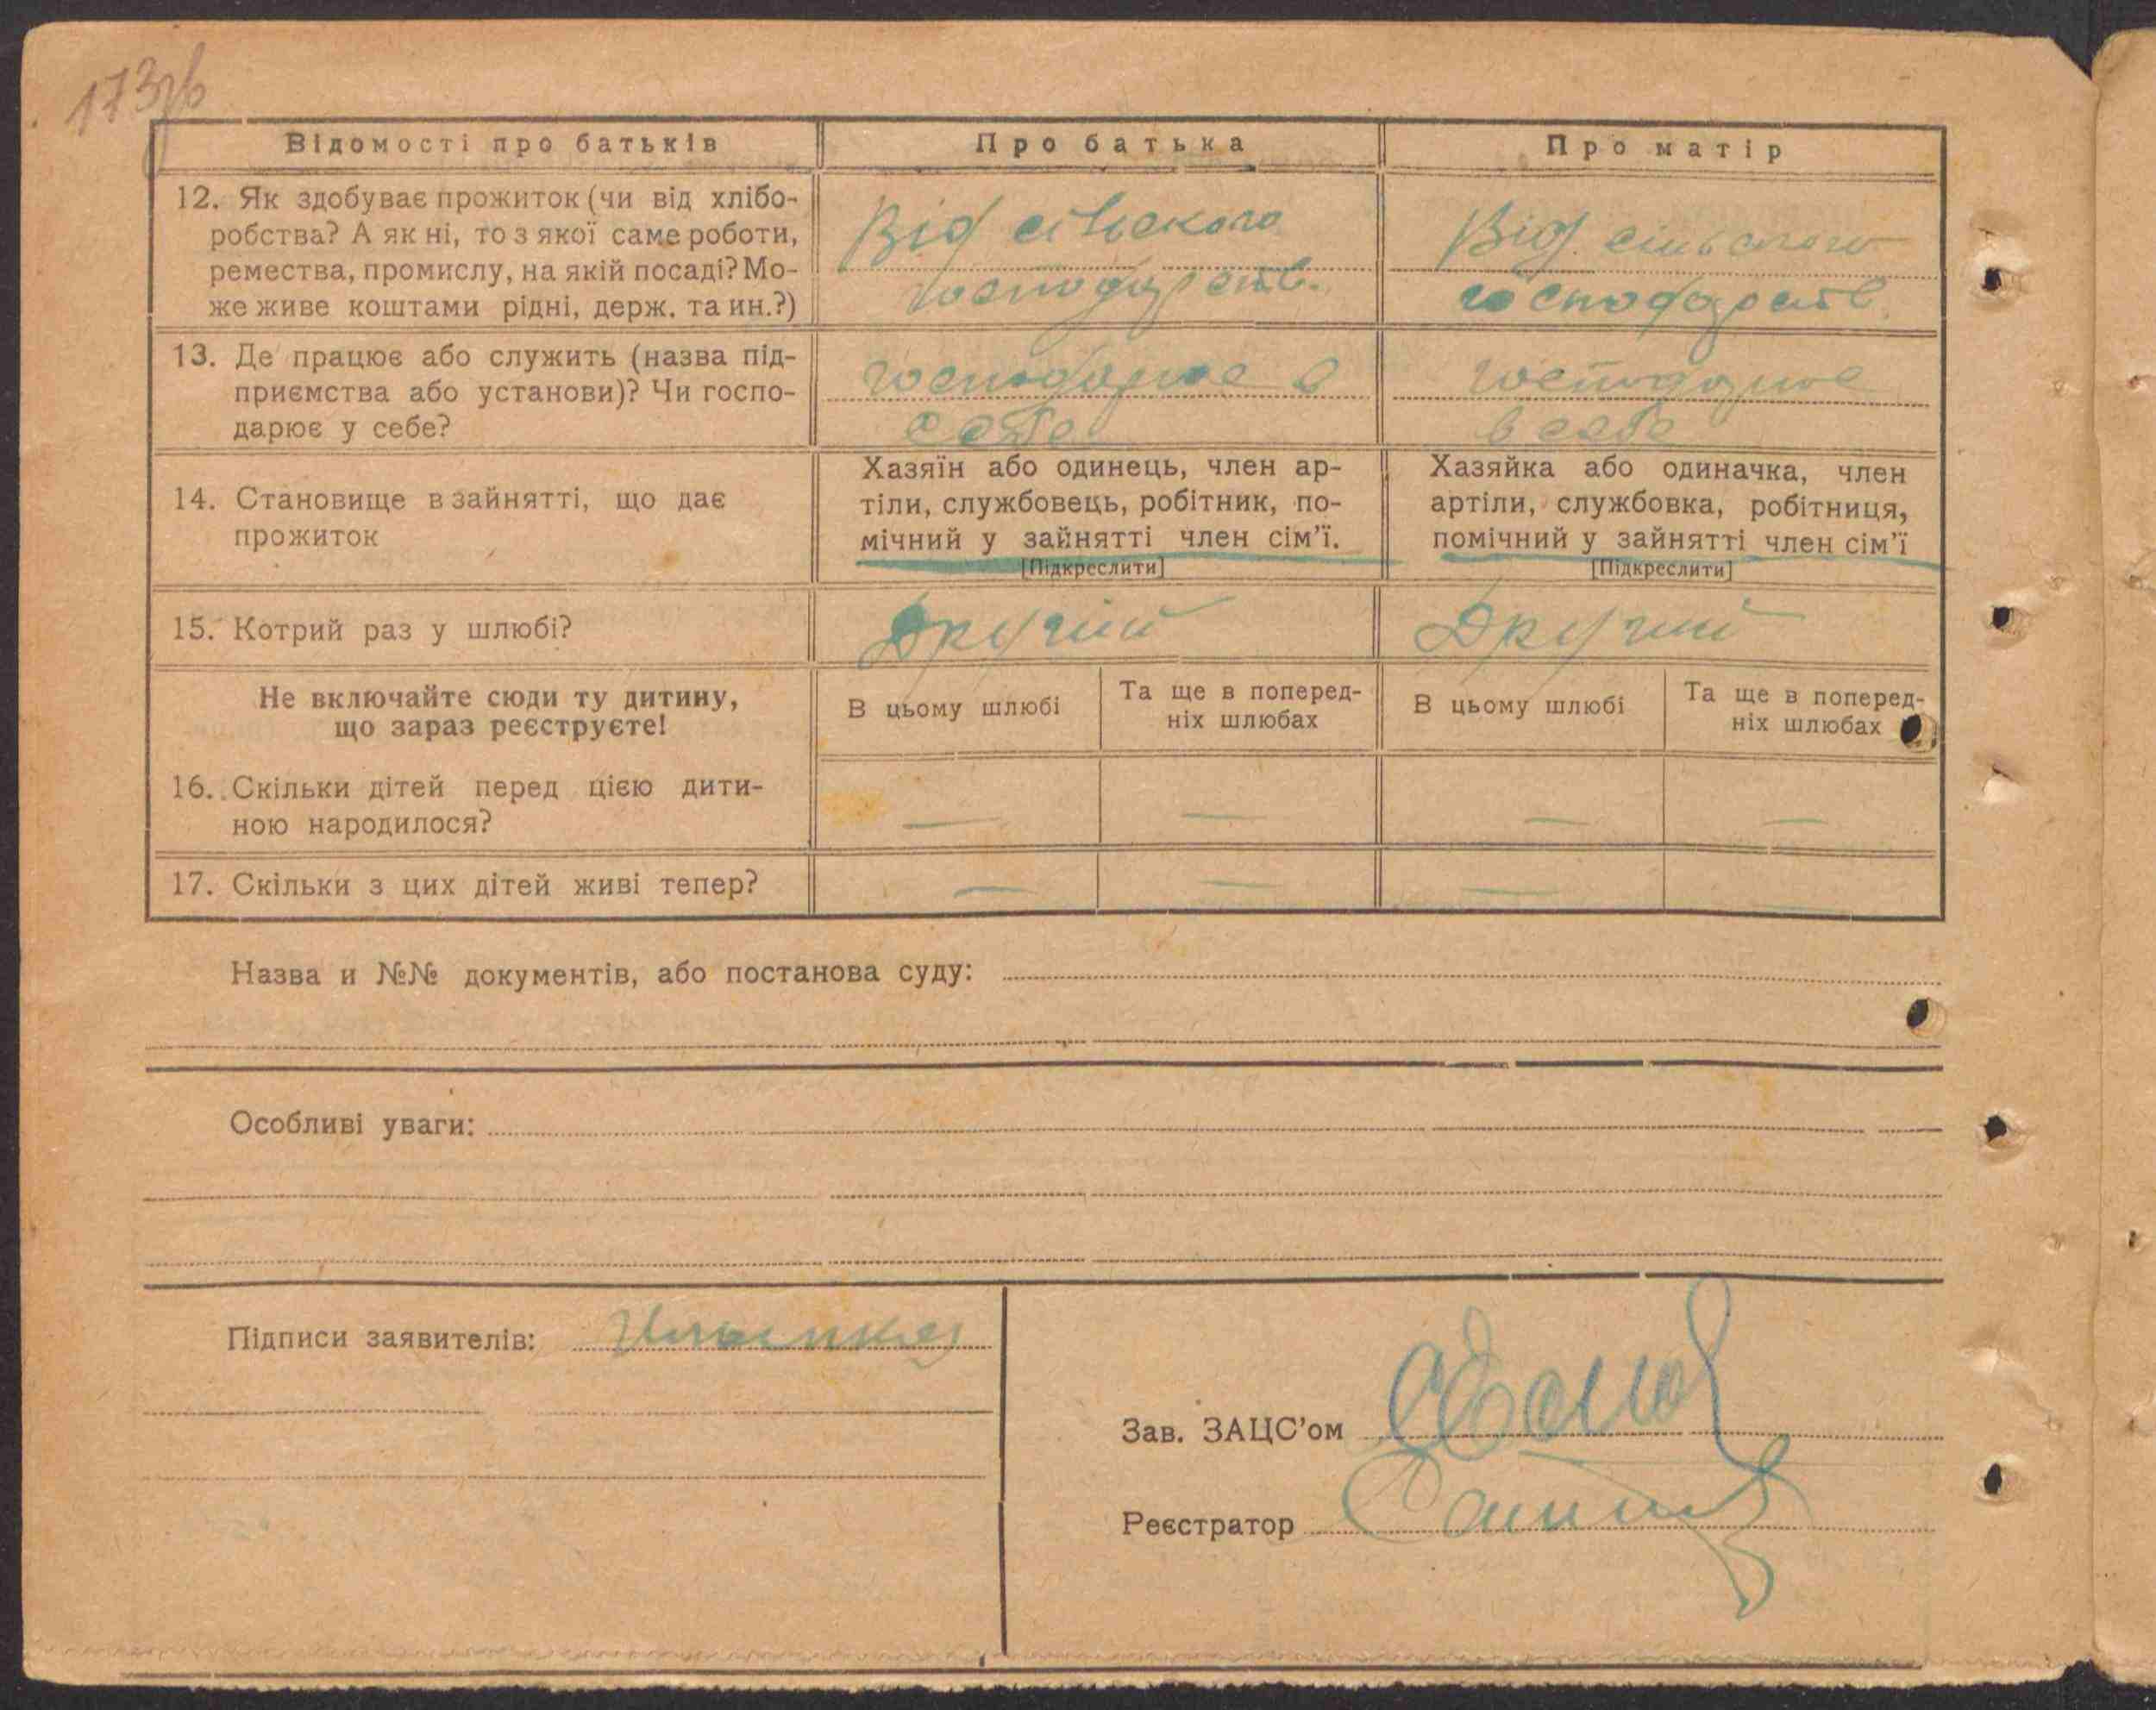 173зв
Відомості про батьків
Про батька
Про матір
12. Як здобуває прожиток (чи від хлібо-
робства? А як ні, то з якої саме роботи,
ремества, промислу, на якій посаді? Мо-
же живе коштами рідні, держ. та ин.?)
Від сільского
господарств.
Від сільского
господарств.
13. Де працює або служить (назва під-
приємства або установи)? Чи госпо-
дарює у себе?
господарює в
себе
господарює
в себе
14. Становище в зайнятті, що дає
прожиток
Хазяїн або одинець, член ар-
тіли, службовець, робітник, по-
мічний у зайнятті член сім'ї.
[Підкреслити]
Хазяйка або одиначка, член
артіли, службовка, робітниця,
помічний у зайнятті член сім'ї
[Підкреслити]
15. Котрий раз у шлюбі?
Другий
Другий
Не включайте сюди ту дитину,
що зараз реєструєте!
В цьому шлюбі
Та ще в поперед-
ніх шлюбах
В цьому шлюбі
Та ще в поперед-
ніх шлюбах
16. Скільки дітей перед цією дити-
ною народилося?
— — — —
17. Скільки з цих дітей живі тепер?
— — —
Назва и №№ документів, або постанова суду:
Особливі уваги:
Підписи заявителів:
Зав. ЗАЦС'ом
Реєстратор